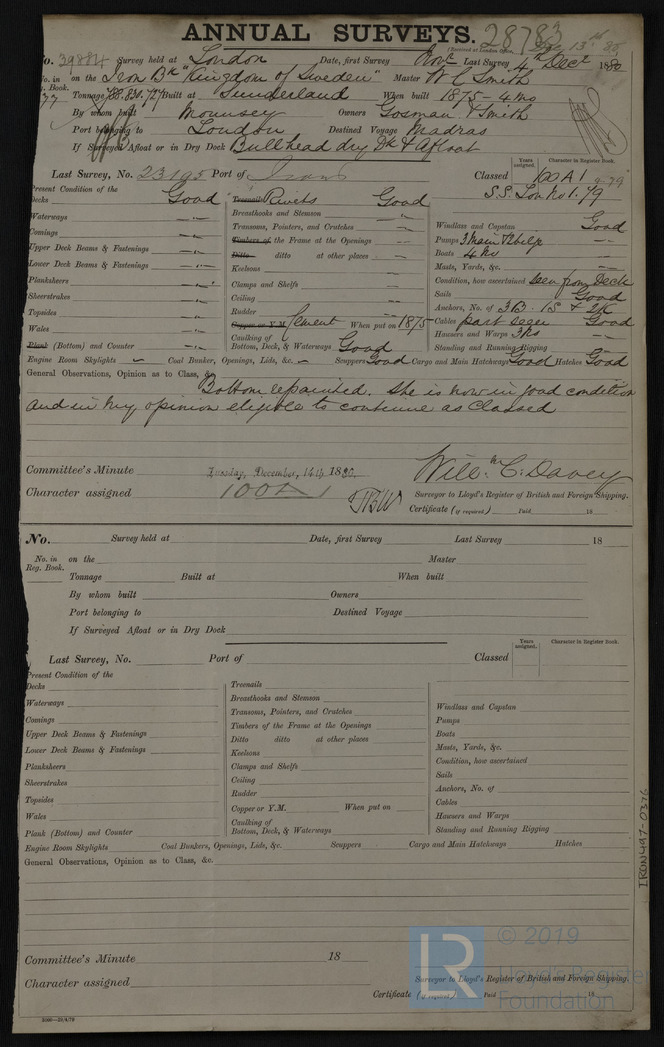 ANNUAL SURVEYS. 28783
(Received at London Office, Dec 13th 80
No. 39884 Survey held at London Date, first Survey Novr Last Survey 4th Decr 1880
No. in on the Iron Bk "Kingdom of Sweden" Master W C Smith
Reg. Book.
77 Tonnage 788.830.727 Built at Sunderland When built 1875 - 4 Mo
By whom built Mounsey Owners Gosman & Smith
Port belonging to London Destined Voyage Madras
If Surveyed Afloat or in Dry Dock Bullhead dry Dk & Afloat
Years assigned. Character in Register Book.
Last Survey, No. 23195 Port of Iron Classed 100 A1 9-79
S.S. Lon No 1.79
Present Condition of the
Decks Good Treenails Rivets Good
Waterways Breasthooks and Stemson Windlass and Capstan Good
Comings Transoms, Pointers, and Crutches Pumps 3 Main & 2 bilge
Upper Deck Beams & Fastenings Timbers of the Frame at the Openings Boats 4 No
Lower Deck Beams & Fastenings Ditto ditto at other places Masts, Yards, &c.
Planksheers Keelsons Condition, how ascertained Seen from Deck
Sheerstrakes Clamps and Shelfs Sails Good
Topsides Ceiling Anchors, No. of 3B. 1S & 2K
Wales Rudder Cables part seen Good
Plank (Bottom) and Counter Copper or Y.M. Cement When put on 1875 Hawsers and Warps 3 No
Caulking of Bottom, Deck, & Waterways Good Standing and Running Rigging
Engine Room Skylights Coal Bunker, Openings, Lids, &c. Scuppers Good Cargo and Main Hatchways Good Hatches Good
General Observations, Opinion as to Class, &c.
Bottom repainted. She is now in good condition
and in my opinion eligible to continue as Classed
Committee's Minute Tuesday, December, 14th 1880.
Character assigned 100 A 1
Willm C. Davey
Surveyor to Lloyd's Register of British and Foreign Shipping.
Certificate (if required) Paid 18
No. Survey held at Date, first Survey Last Survey 18
No. in on the Master
Reg. Book.
Tonnage Built at When built
By whom built Owners
Port belonging to Destined Voyage
If Surveyed Afloat or in Dry Dock
Years assigned. Character in Register Book.
Last Survey, No. Port of Classed
Present Condition of the
Decks Treenails
Waterways Breasthooks and Stemson Windlass and Capstan
Comings Transoms, Pointers, and Crutches Pumps
Upper Deck Beams & Fastenings Timbers of the Frame at the Openings Boats
Lower Deck Beams & Fastenings Ditto ditto at other places Masts, Yards, &c.
Planksheers Keelsons Condition, how ascertained
Sheerstrakes Clamps and Shelfs Sails
Topsides Ceiling Anchors, No. of
Wales Rudder Cables
Plank (Bottom) and Counter Copper or Y.M. When put on Hawsers and Warps
Caulking of Bottom, Deck, & Waterways Standing and Running Rigging
Engine Room Skylights Coal Bunkers, Openings, Lids, &c. Scuppers Cargo and Main Hatchways Hatches
General Observations, Opinion as to Class, &c.
Committee's Minute 18
Character assigned
Surveyor to Lloyd's Register of British and Foreign Shipping.
Certificate (if required) Paid 18
IRON497-0376
LR © 2019
Lloyd's Register
Foundation